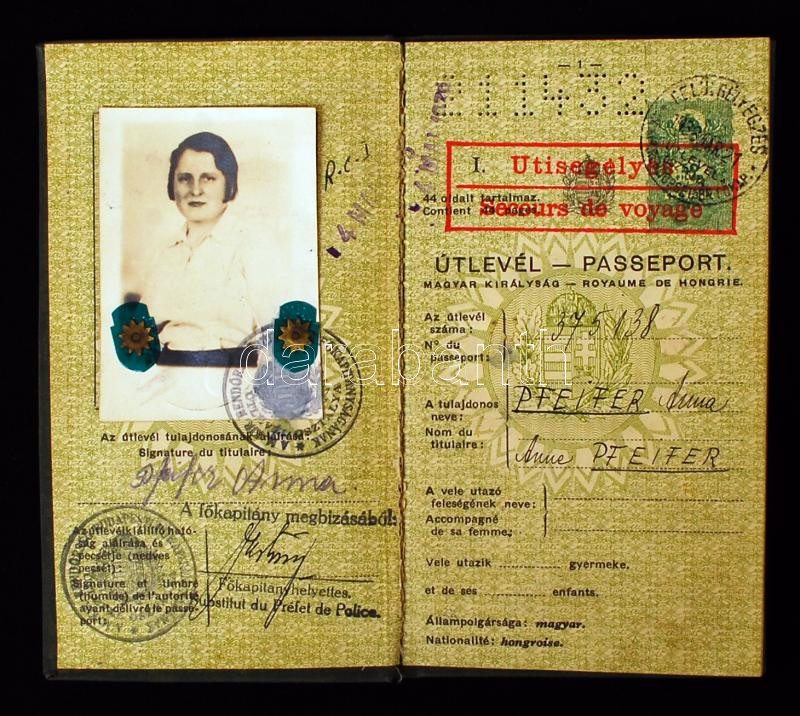 R.C.J
Az útlevél tulajdonosának aláírása:
Signature du titulaire:
Pfeifer Anna.
A főkapitány megbizásából:
Az útlevélkiállító ható-
ság aláírása és
pecsétje (nedves
pecsét):
Signature et timbre
(humide) de l'autorité
ayant délivré le passe-
port:
Főkapitányhelyettes.
Substitut du Préfet de Police.
— 1 —
111432
I. Utisegélyes
Secours de voyage
44 oldalt tartalmaz.
Contient 44 pages.
ÚTLEVÉL — PASSEPORT.
MAGYAR KIRÁLYSÁG — ROYAUME DE HONGRIE.
Az útlevél
száma:
N° du
passeport:
375138
A tulajdonos
neve:
Nom du
titulaire:
PFEIFER Anna
Anne PFEIFER
A vele utazó
feleségének neve:
Accompagné
de sa femme:
Vele utazik gyermeke.
et de ses enfants.
Állampolgársága: magyar.
Nationalité: hongroise.
darabanth